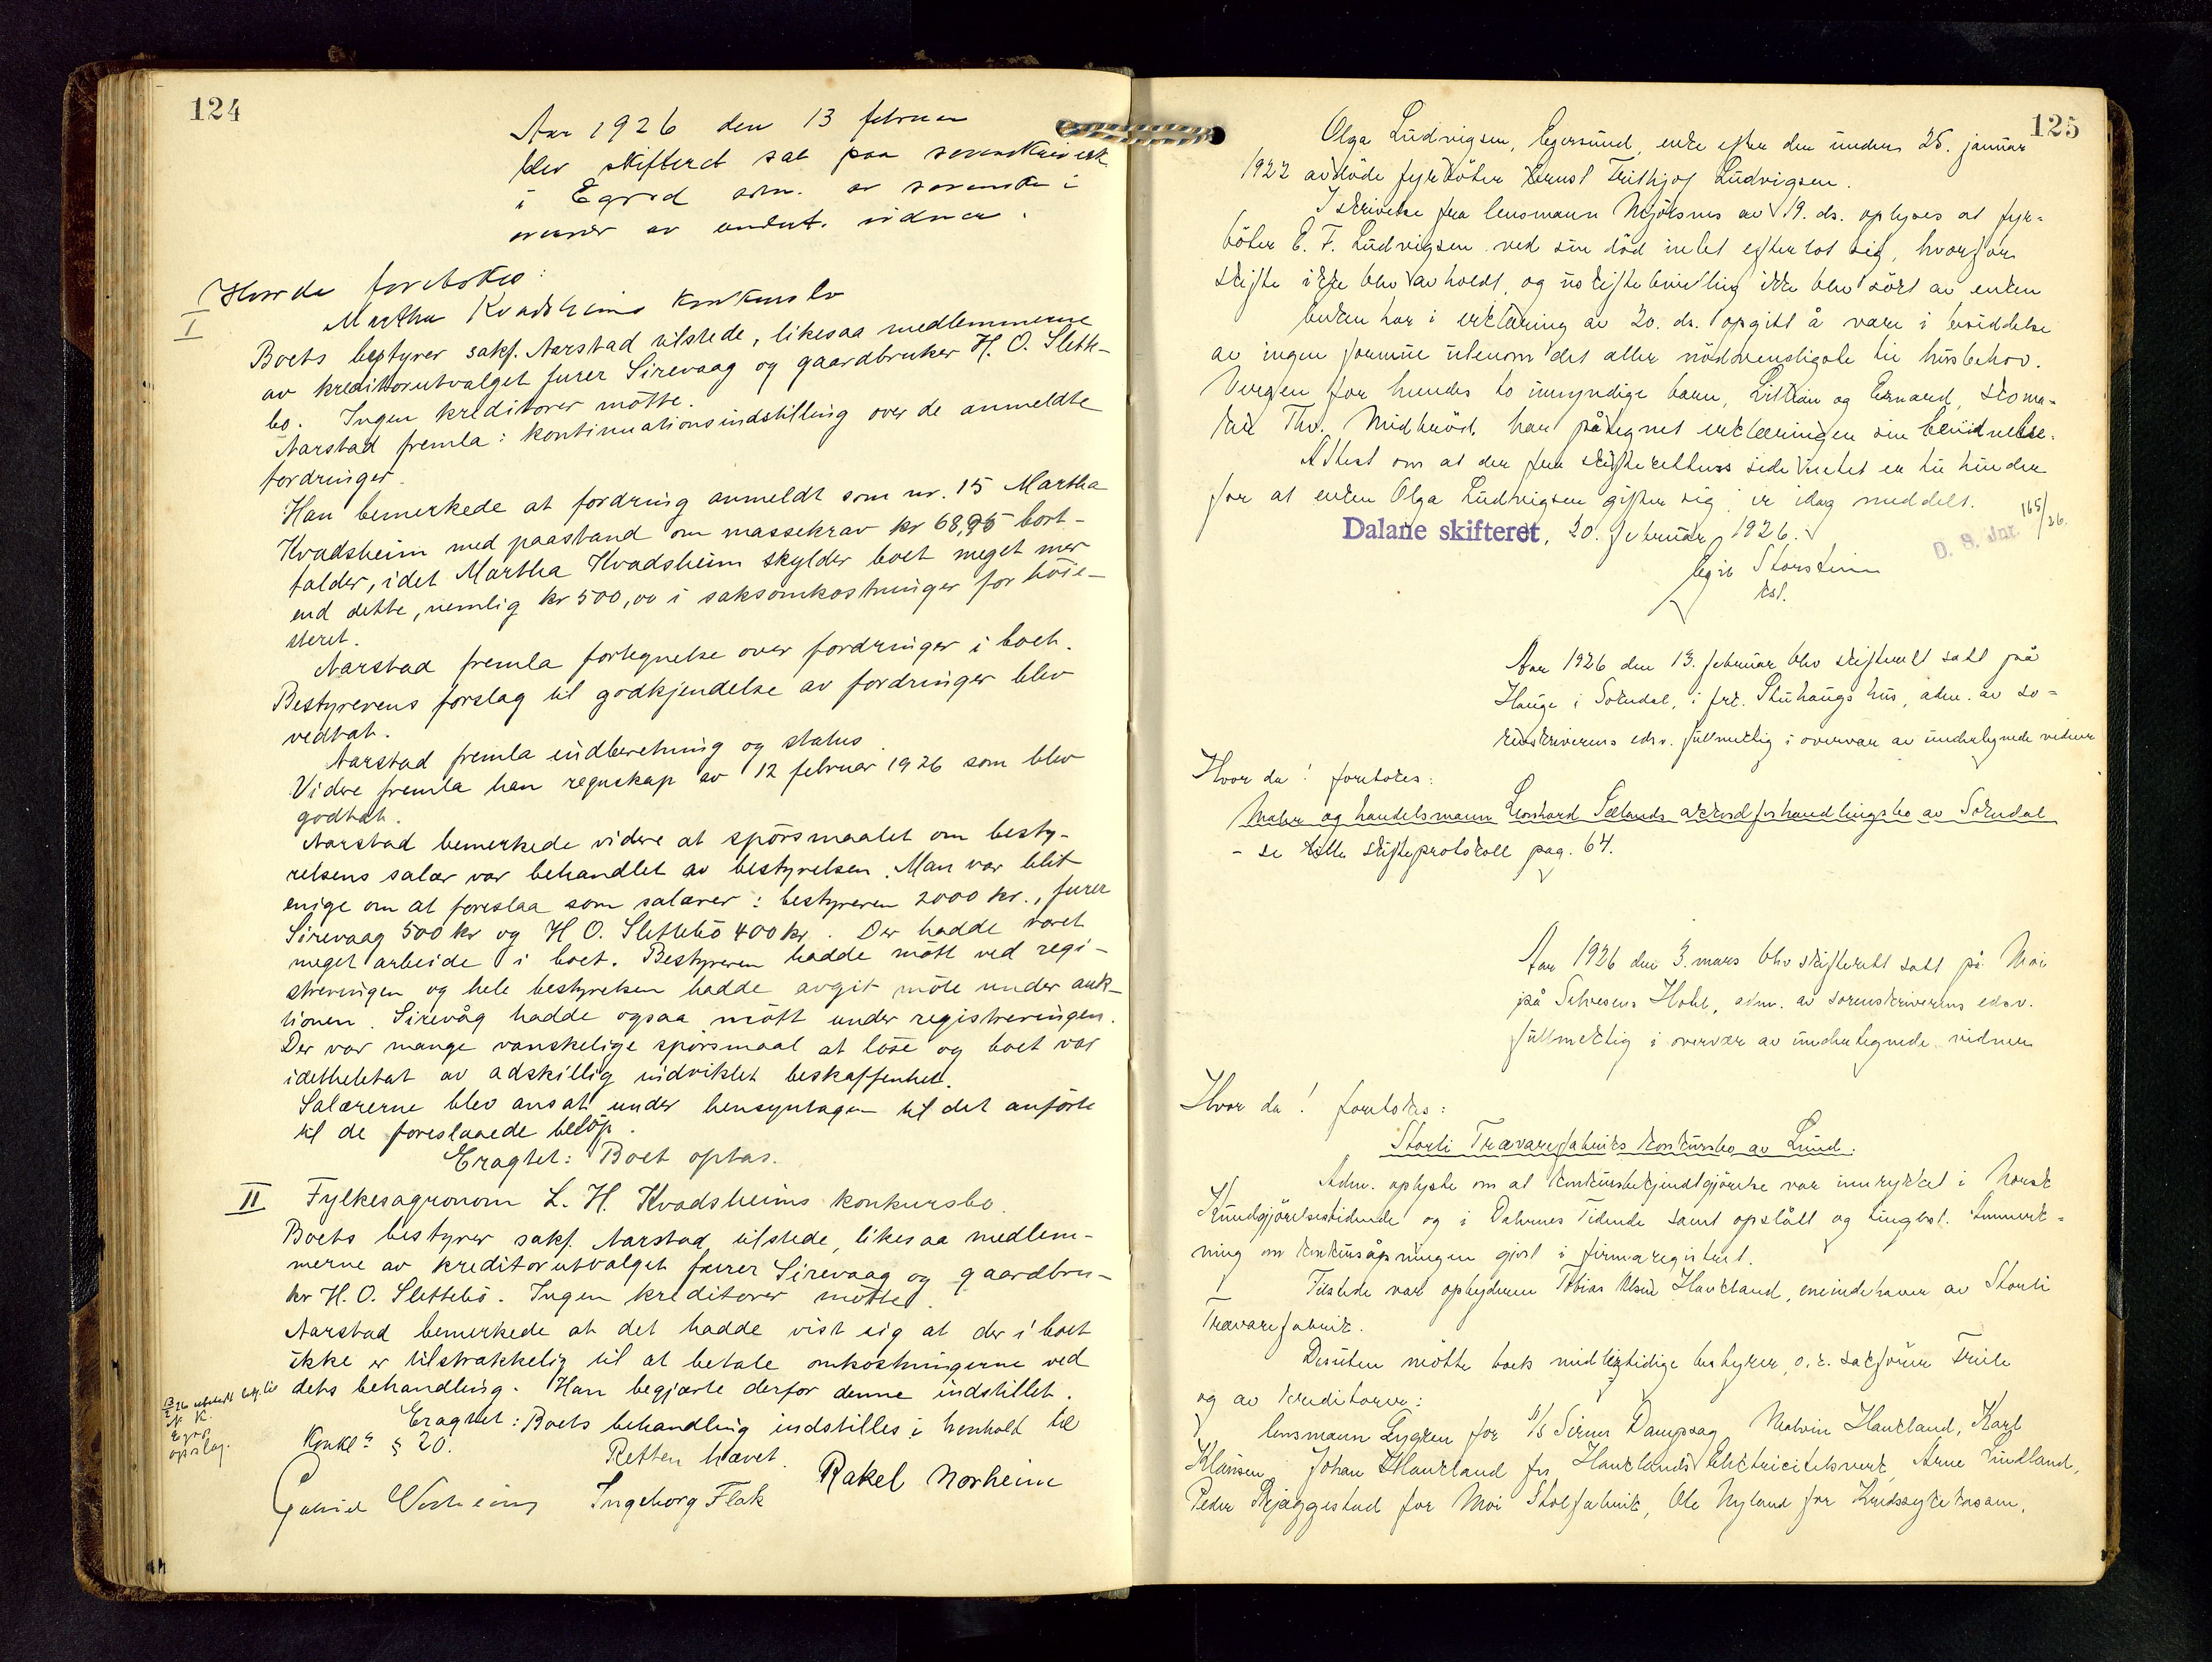 124
Aar 1926 den 13 februar
blev skifteret sat paa sorenskriverk
i Egrsd adm. av sorenskr i
overvær av undert. vidner.
Hvorda foretokes:
I Martha Kvadsheims konkursbo
Boets bestyrer sakf. Aarstad tilstede, likesaa medlemmerne
av kreditorutvalget furer Sirevaag og gaardbruker H. O. Slette-
bo. Ingen kreditorer møtte.
Aarstad fremla: kontinuationsindstilling over de anmeldte
fordringer.
Han bemerkede at fordring anmeldt som nr. 15 Martha
Kvadsheim med paastand om massekrav kr 68,95 bort-
falder, idet Martha Kvadsheim skylder boet meget mer
end dette, nemlig kr 500,00 i saksomkostninger for høie-
steret.
Aarstad fremla fortegnelse over fordringer i boet.
Bestyrerens forslag til godkjendelse av fordringer blev
vedtat.
Aarstad fremla indberetning og status.
Videre fremla han regnskap av 12 februar 1926 som blev
godtat.
Aarstad bemerkede videre at spørsmaalet om besty-
relsens salær var behandlet av bestyrelsen. Man var blit
enige om at foreslaa som salærer: bestyreren 2000 kr., furer
Sirevaag 500 kr og H O. Slettebö 400 kr. Der hadde været
meget arbeide i boet. Bestyreren hadde møtt ved regi-
streringen og hele bestyrelsen hadde avgit møte under auk-
tionen. Sirevåg hadde ogsaa møtt under registreringen.
Der var mange vanskelige spørsmaal at løse og boet var
idetheletat av adskillig indviklet beskaffenhet.
Salærerne blev ansat under hensyntagen til det anførte
til de foreslaaede beløp.
Eragtet: Boet optas.
II Fylkesagronom L. H. Kvadsheims konkursbo.
Boets bestyrer sakf. Aarstad tilstede, likesaa medlem-
merne av kreditorutvalget furer Sirevaag og gaardbru-
ker H. O. Slettebö. Ingen kreditorer møtte.
Aarstad bemerkede at det hadde vist sig at der i boet
ikke er tilstrækkelig til at betale omkostningerne ved
dets behandling. Han begjærte derfor denne indstillet.
Eragtet: Boets behandling indstilles i henhold til
Konkl. § 20.
26 til
N. K.
opslag.
Retten hævet.
Gabriel Ingeborg Flak Rakel Norheim
125
Olga Ludvigsen, Egersund, enke efter den under 25. januar
1922 avdöde fyrböter Ernst Frithjof Ludvigsen.
I skrivelse fra lensmann Mjölsnes av 19. ds. oplyses at fyr-
böter E. F. Ludvigsen ved sin död intet efterlot sig, hvorfor
skifte ikke blev avholdt, og uskiftebevilling ikke blev sökt av enken
Enken har i erklæring av 20. ds. opgitt å være i besiddelse
av ingen formue utenom det aller nödvendigste til husbehov.
Vergen for hendes to umyndige barn, Lillian og Ernard, skoma-
ker Thv. Midbröd har påtegnet erklæringen sin bevidnelse.
Attest om at der fra skifterettens side intet er til hinder
for at enken Olga Ludvigsen gifter sig, er idag meddelt.
Dalane skifteret, 20. februar 1926.
D. S. Jnr. 165/26.
Egil Storstein
kst.
Aar 1926 den 13. februar blev skifterett satt på
Hauge i Sokndal, i frk. Stuhaugs hus, adm. av so-
renskriverens edsv. fullmektig i overvær av undertegnede vidner
Hvor da! foretokes:
Maler og handelsmann Leonhard Sælands akkordforhandlingsbo av Sokndal
- se lille skifteprotokoll pag. 64.
Aar 1926 den 3. mars blev skifterett satt på Moi
på Salvesens Hotel, adm. av sorenskriverens edsv.
fullmektig i overvær av undertegnede vidner
Hvor da! foretokes:
Storli Trævarefabriks konkursbo av Lund.
Adm. oplyste om at konkursbekjendtgjörelse var innrykket i Norsk
Kundgjörelsestidende og i Dalernes Tidende samt opslått og tinglest. Anmerk-
ning om konkursåpningen gjort i firmaregistret.
Tilstede var opbyderen Tobias Olsen Haukland, eneindehaver av Storli
Trævarefabrik.
Desuten møtte boets midlertidige bestyrer, o.r. sakförer Friele
og av kreditorer:
lensmann Lygren for A/S Sirnes Dampsag, Malvin Haukland, Karl
Klausen, Johan Haukland for Hauklands Electricitetsverk, Arne Lindland,
Peder Skjæggestad for Moi Stolfabrik, Ole Nyland for Kredssykekassen,